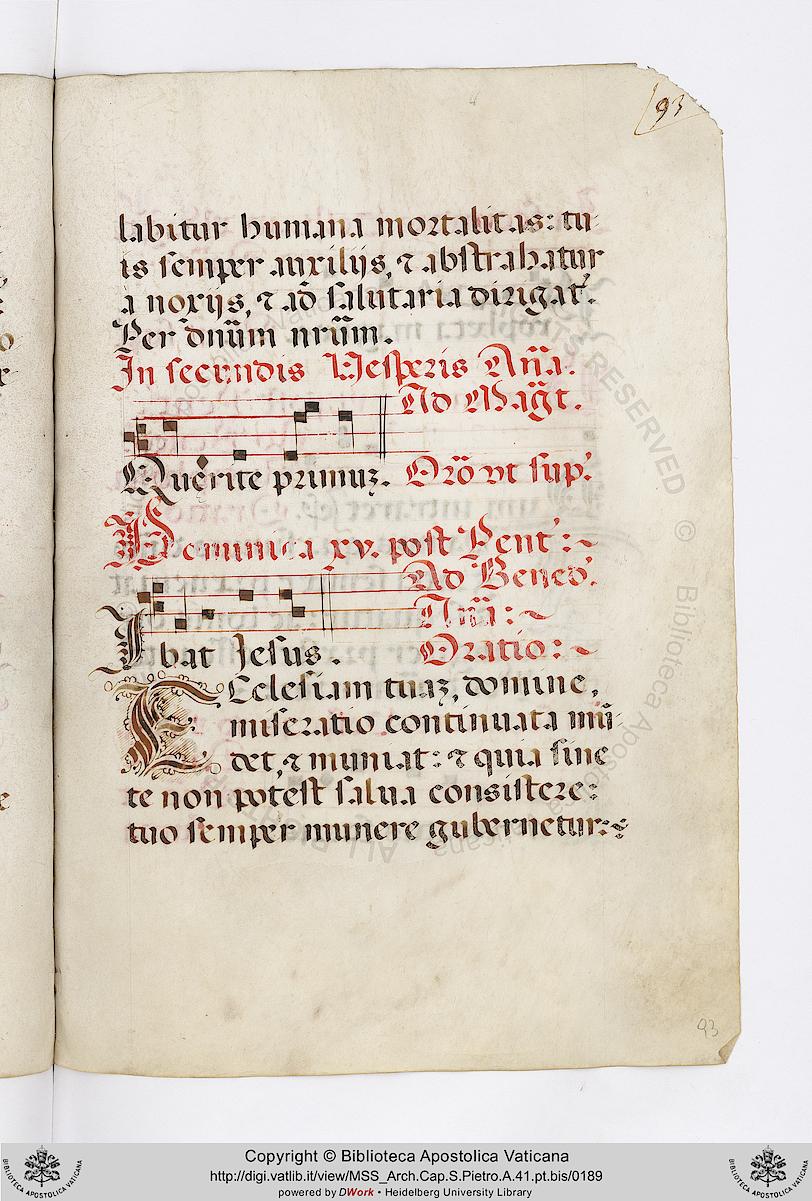 93
labitur humana mortalitas: tu
is semper auxilijs, ⁊ abstrahatur
a noxijs, ⁊ ad salutaria dirigat'.
Per dnūm nrūm.
In secundis Vesperis Anã.
Ad Magt.
Querite primuz. Orõ vt sup'.
Dominica xv. post Pent':~
Ad Bened'.
Anã:~
Ibat Jesus. Oratio:~
Ecclesiam tuaz, domine,
miseratio continuata mū
det, ⁊ muniat: ⁊ quia sine
te non potest salua consistere:
tuo semper munere gubernetur:~
93
ALL RIGHTS RESERVED © Biblioteca Apostolica Vaticana
BIBLIOTECA APOSTOLICA VATICANA
Copyright © Biblioteca Apostolica Vaticana
http://digi.vatlib.it/view/MSS_Arch.Cap.S.Pietro.A.41.pt.bis/0189
powered by DWork • Heidelberg University Library
BIBLIOTECA APOSTOLICA VATICANA